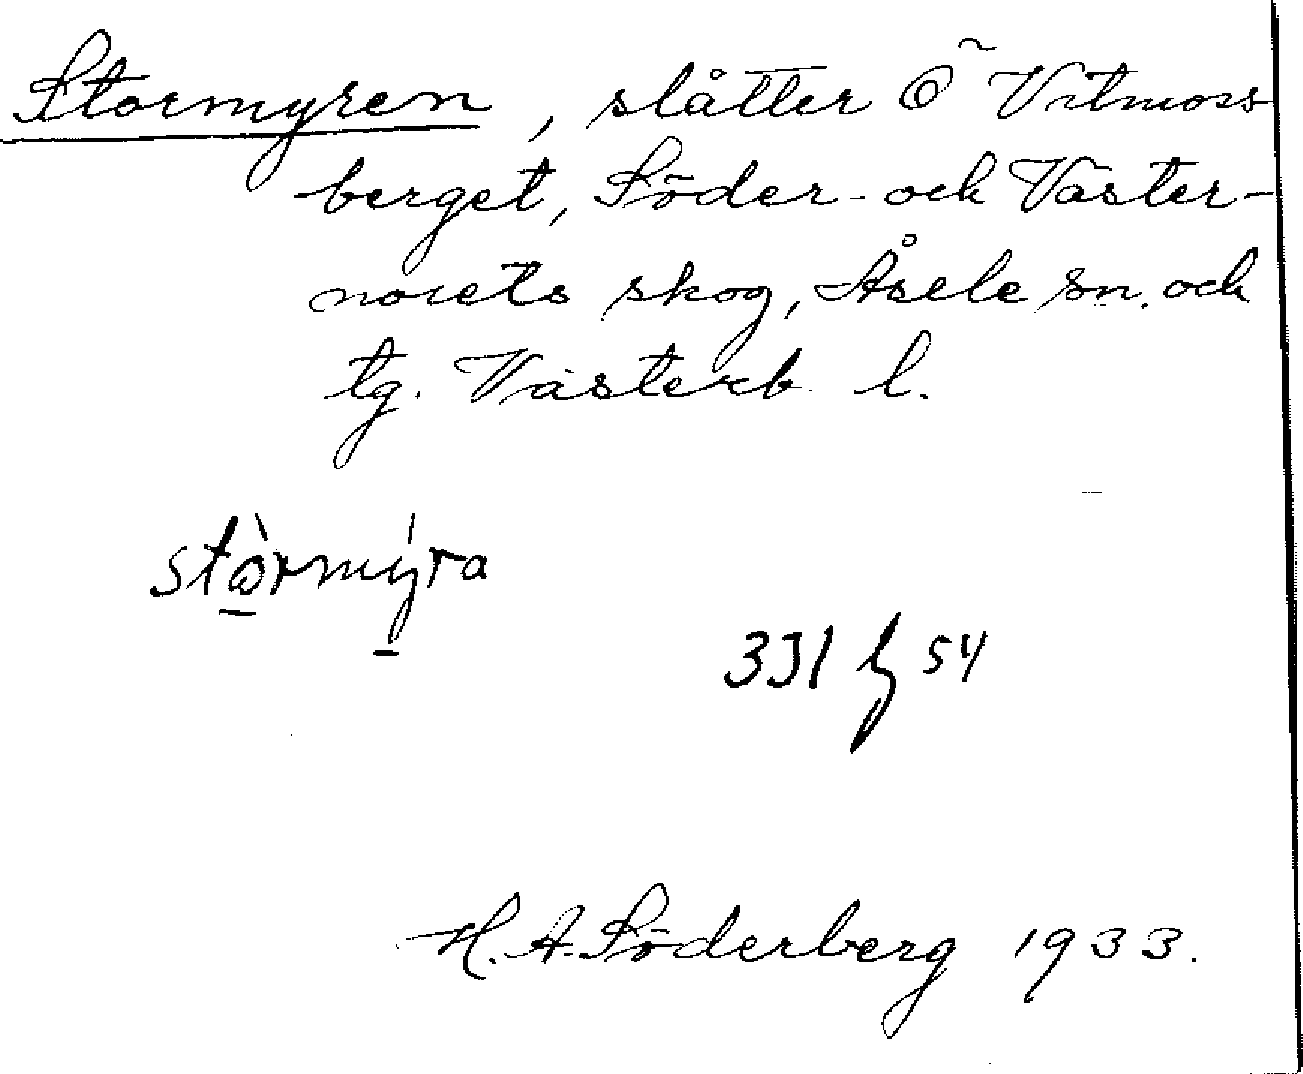 Stormyren, slåtter Ö Vitmoss
berget, Söder- och Väster-
norets skog, Åsele sn. och
tg. Västerb. l.
stòrmýra
331 54
H. A. Söderberg 1933.